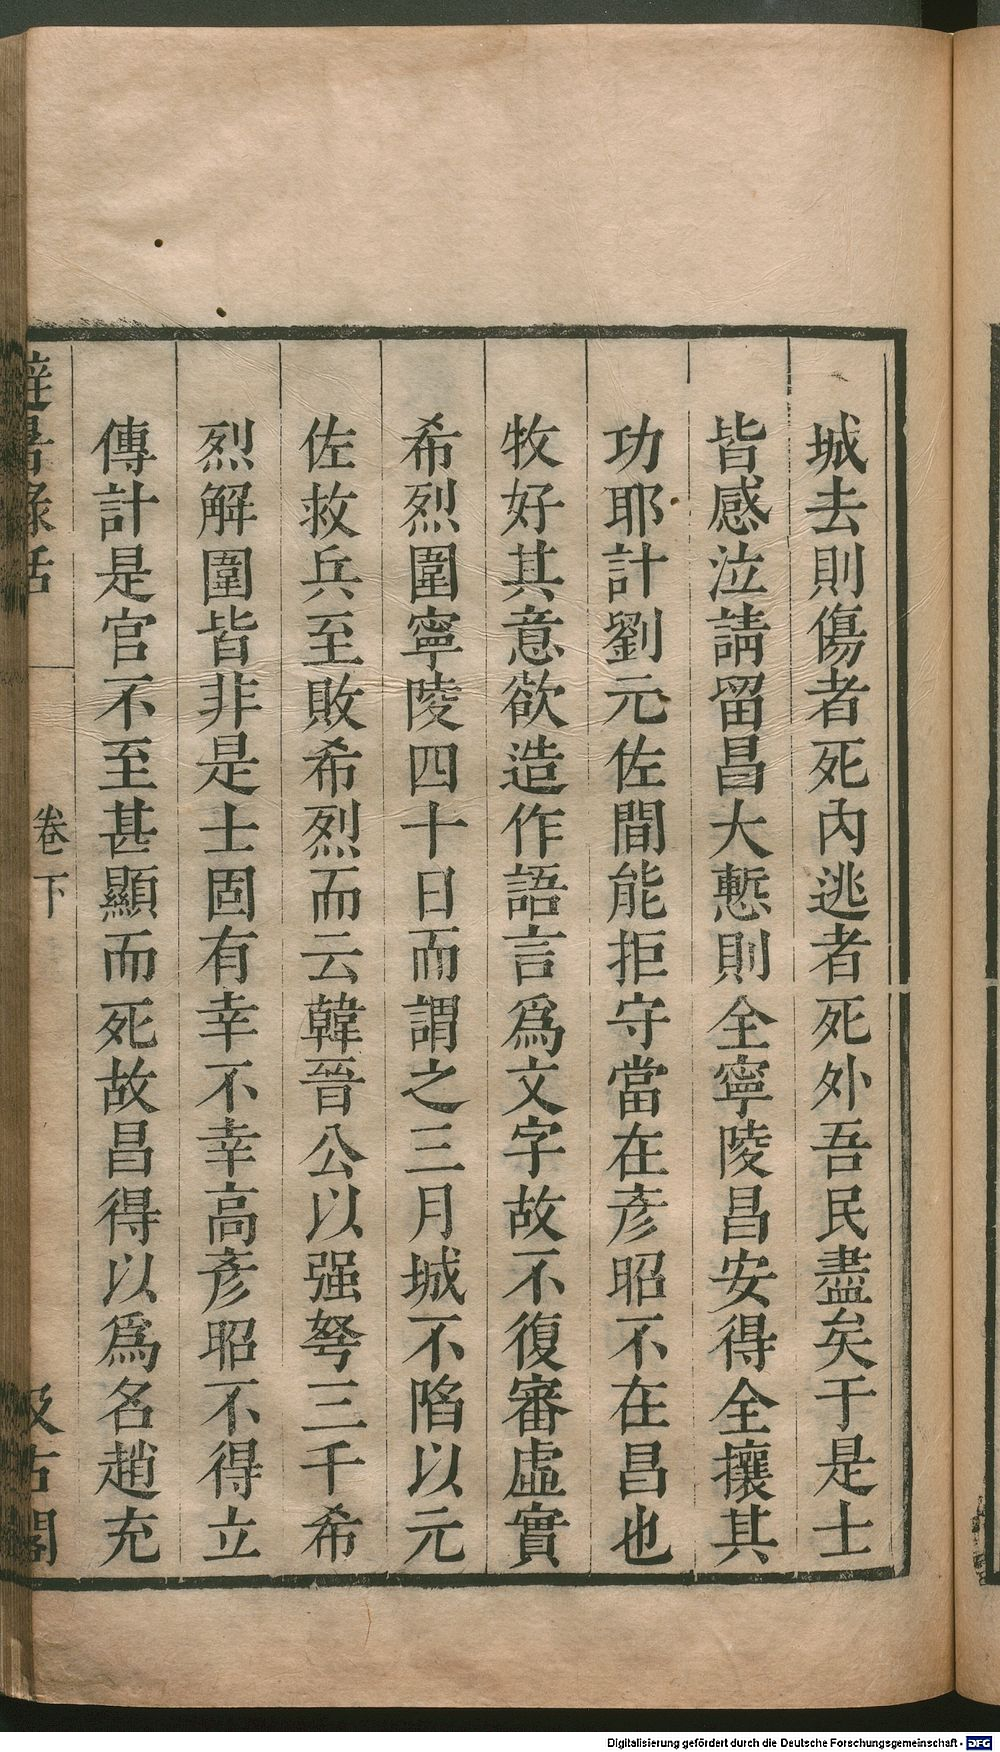 城去則傷者死內逃者死外吾民盡矣于是士
皆感泣請留昌大慙則全寧陵昌安得全攘其
功耶計劉元佐間能拒守當在彥昭不在昌也
牧好其意欲造作語言爲文字故不復審虛實
希烈圍寧陵四十日而謂之三月城不陷以元
佐救兵至敗希烈而云韓晉公以强弩三千希
烈解圍皆非是士固有幸不幸高彥昭不得立
傳計是官不至甚顯而死故昌得以爲名趙充
避暑錄話
卷下
汲古閣
Digitalisierung gefördert durch die Deutsche Forschungsgemeinschaft - DFG